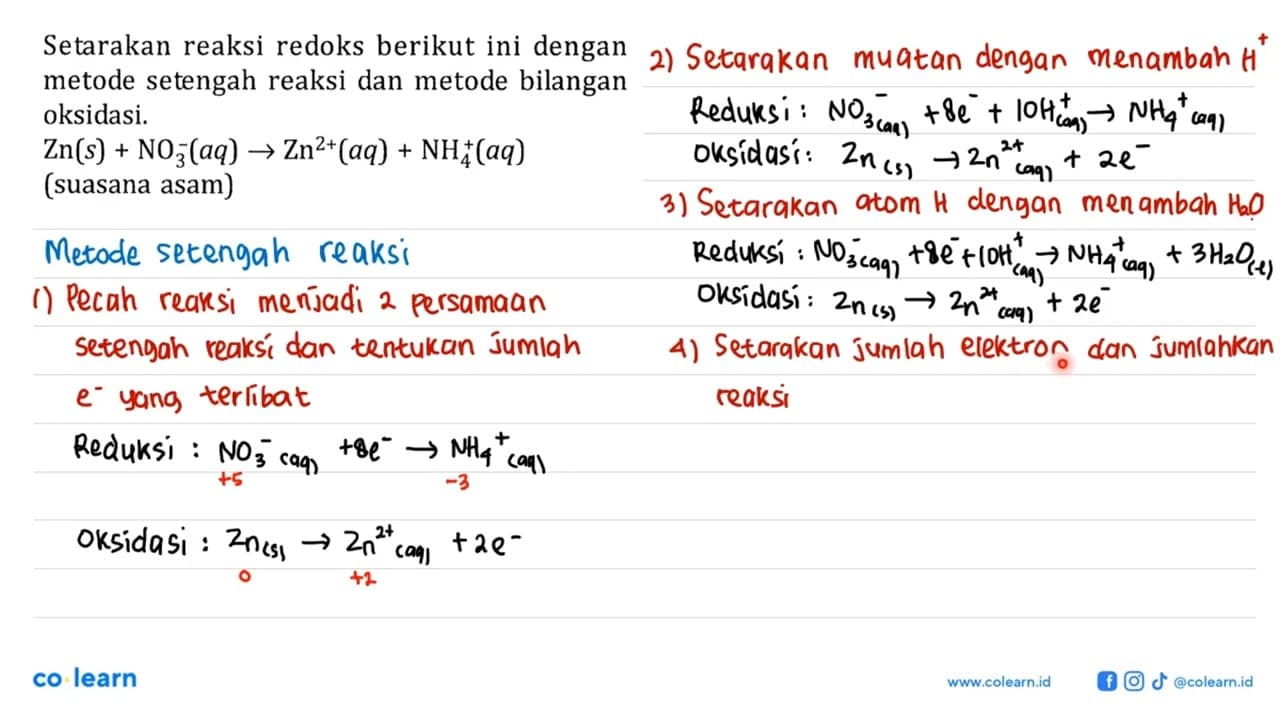 Setarakan reaksi redoks berikut ini dengan
metode setengah reaksi dan metode bilangan
oksidasi.
Zn(s) + NO₃⁻(aq) → Zn²⁺(aq) + NH₄⁺(aq)
(suasana asam)
Metode setengah reaksi
1) Pecah reaksi menjadi 2 persamaan
setengah reaksi dan tentukan jumlah
e⁻ yang terlibat
Reduksi : NO₃⁻(aq) +8e⁻ → NH₄⁺(aq)
+5 -3
Oksidasi : Zn(s) → Zn²⁺(aq) + 2e⁻
0 +2
2) Setarakan muatan dengan menambah H⁺
Reduksi : NO₃⁻(aq) +8e⁻ + 10H⁺(aq) → NH₄⁺(aq)
Oksidasi : Zn(s) → Zn²⁺(aq) + 2e⁻
3) Setarakan atom H dengan menambah H₂O
Reduksi : NO₃⁻(aq) +8e⁻+10H⁺(aq) → NH₄⁺(aq) + 3H₂O(l)
Oksidasi : Zn(s) → Zn²⁺(aq) + 2e⁻
4) Setarakan jumlah elektron dan jumlahkan
reaksi
co learn
www.colearn.id
@colearn.id